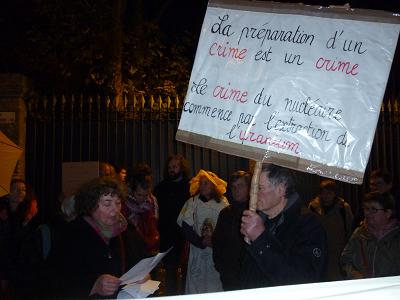 La préparation d'un
crime est un crime
Le crime du nucléaire
commence par l'extraction de
l'uranium